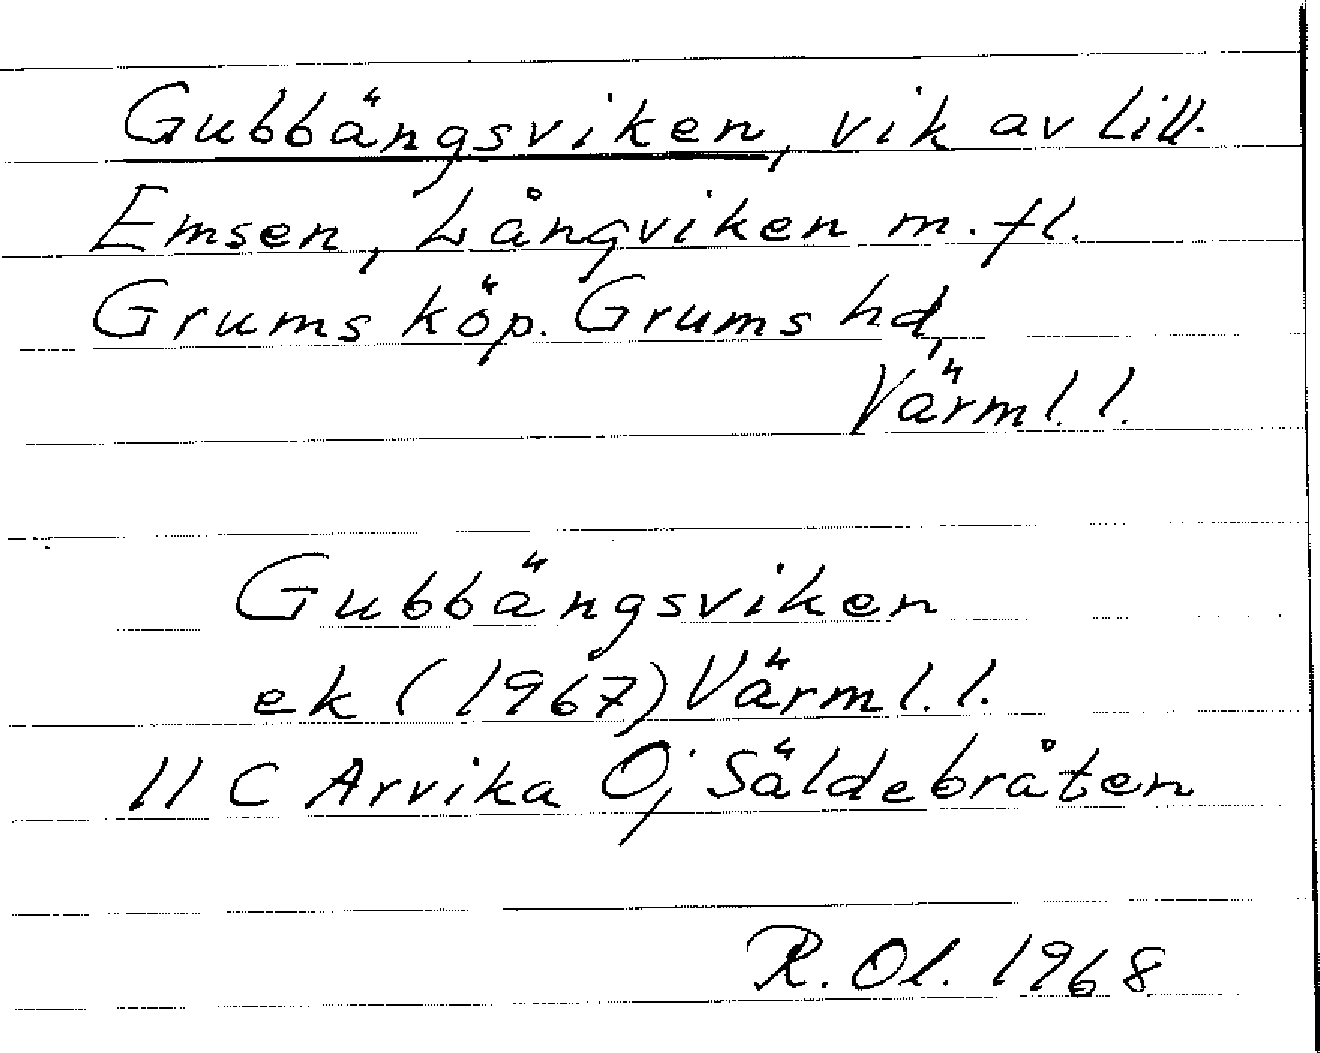 Gubbängsviken, vik av Lill-
Emsen, Långviken m. fl.
Grums köp. Grums hd,
Värml. l.
Gubbängsviken
ek (1967) Värml. l.
11 C Arvika Oj Säldebråten
R. Ol. 1968